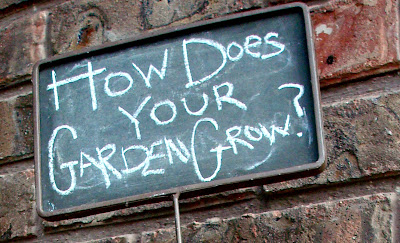 How Does
Your
Garden Grow?